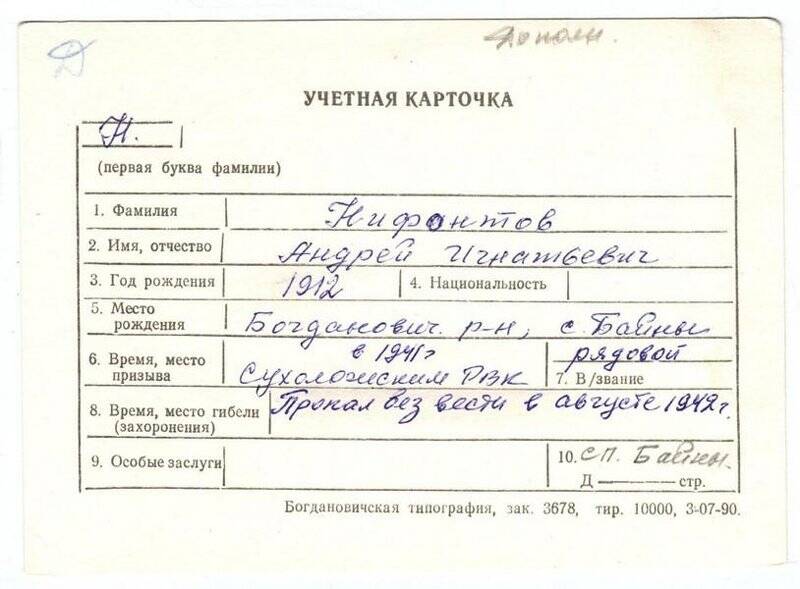 Д
Дополн.
УЧЕТНАЯ КАРТОЧКА
Н.
(первая буква фамилии)
1. Фамилия Нифонтов
2. Имя, отчество Андрей Игнатьевич
3. Год рождения 1912 4. Национальность
5. Место рождения Богданович. р-н, с. Байны
6. Время, место призыва в 1941г Сухоложским РВК
рядовой
7. В/звание
8. Время, место гибели (захоронения) Пропал без вести в августе 1942г.
9. Особые заслуги
10. с.п. Байны.
Д — стр.
Богдановичская типография, зак. 3678, тир. 10000, 3-07-90.